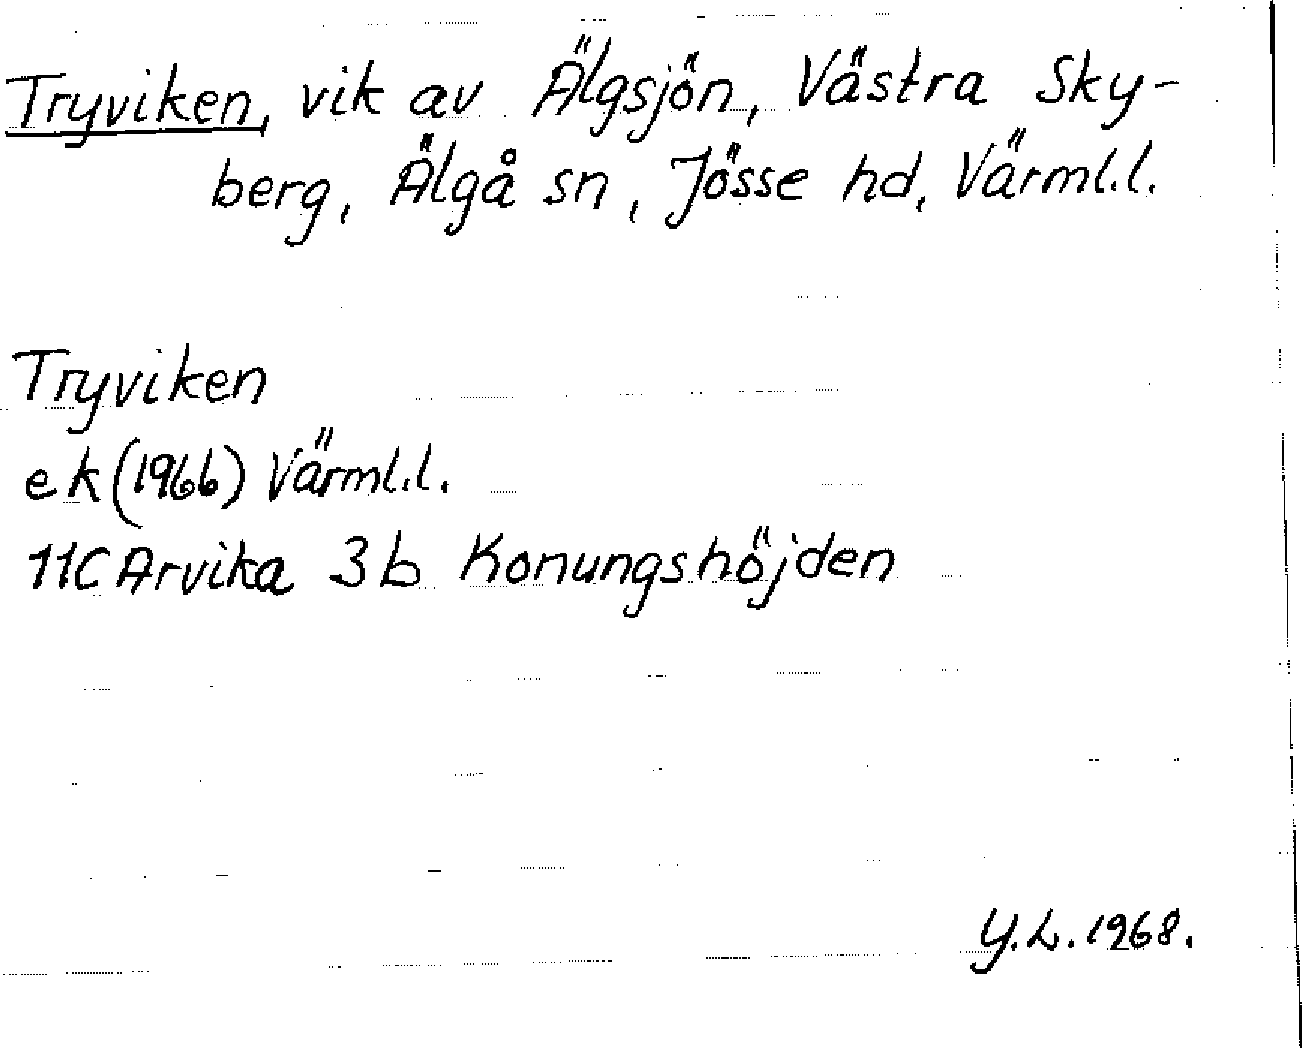 Tryviken, vik av Älgsjön, Västra Sky-
berg, Älgå sn, Jösse hd, Värml.l.
Tryviken
ek (1966) Värml.l.
11C Arvika 3b Konungshöjden
Y.L. 1968.